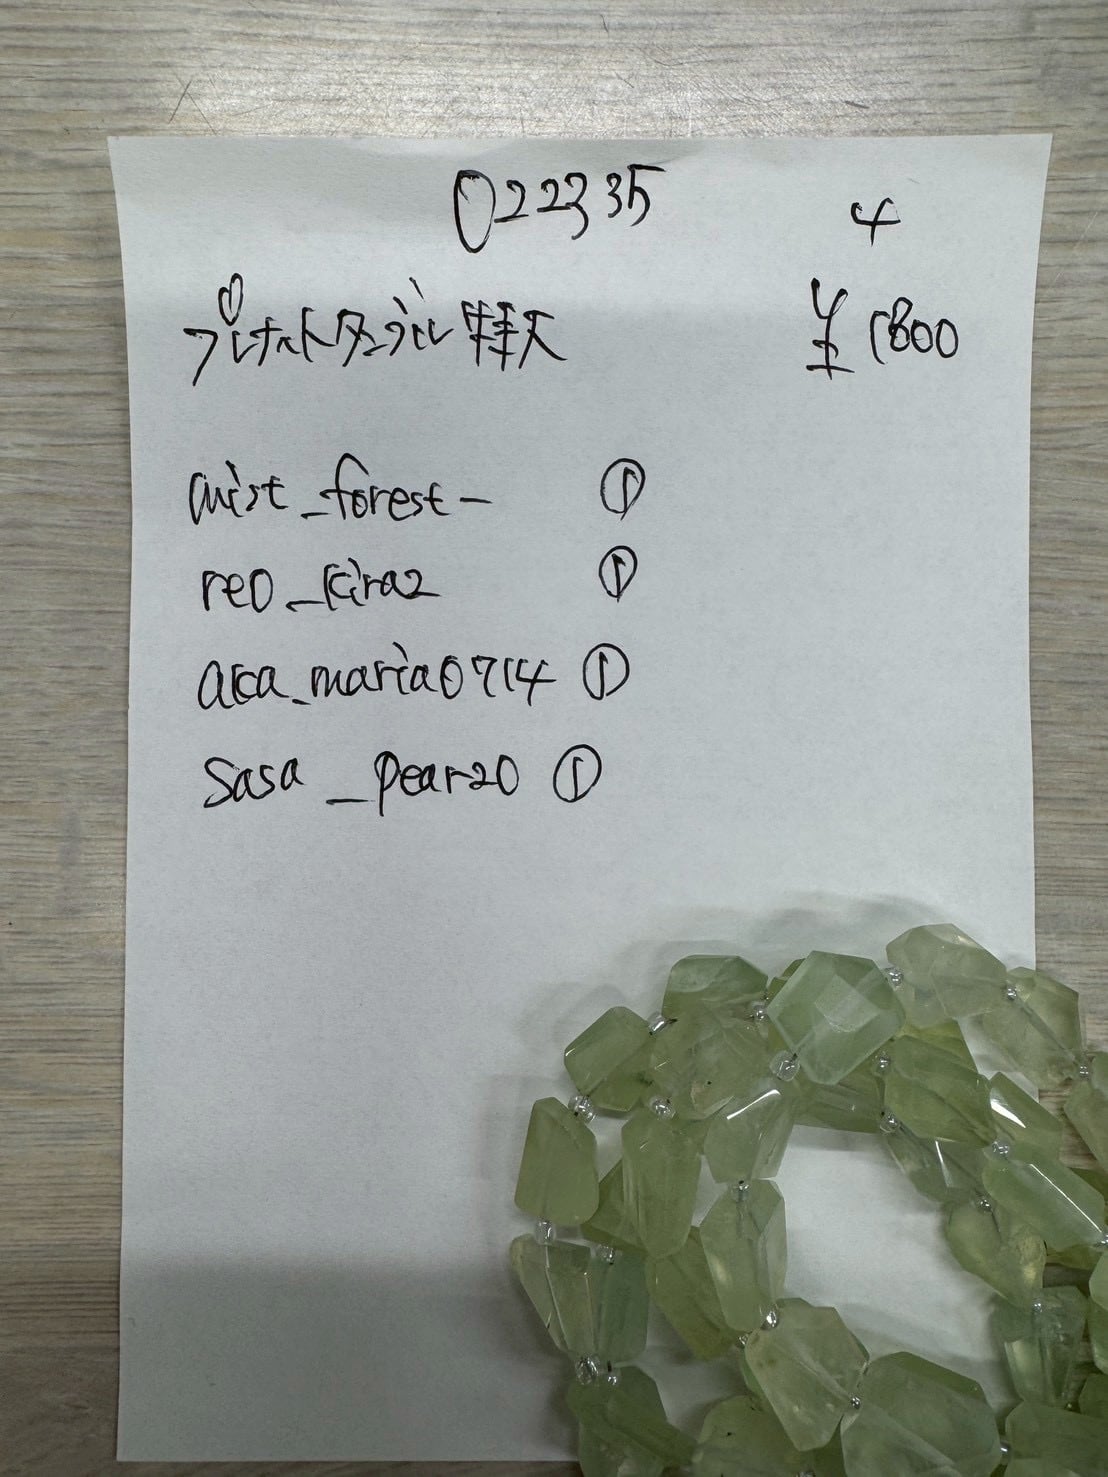 022335
4
プレナイトタンブル特大
¥1800
mist_forest_ ①
reo_kira2 ①
aka_maria0714 ①
Sasa_pear20 ①